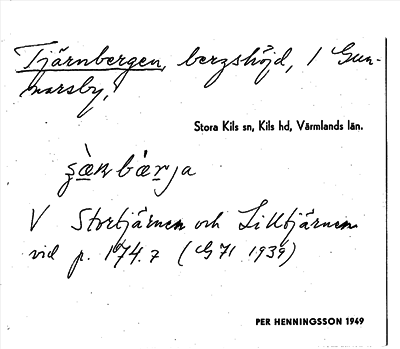 Tjärnbergen, bergshöjd, / Gun-
narsby,
Stora Kils sn, Kils hd, Värmlands län.
bær̲ja
V Stortjärnen och Lilltjärnen
vid p. 174.7 (G 71 1939)
PER HENNINGSSON 1949